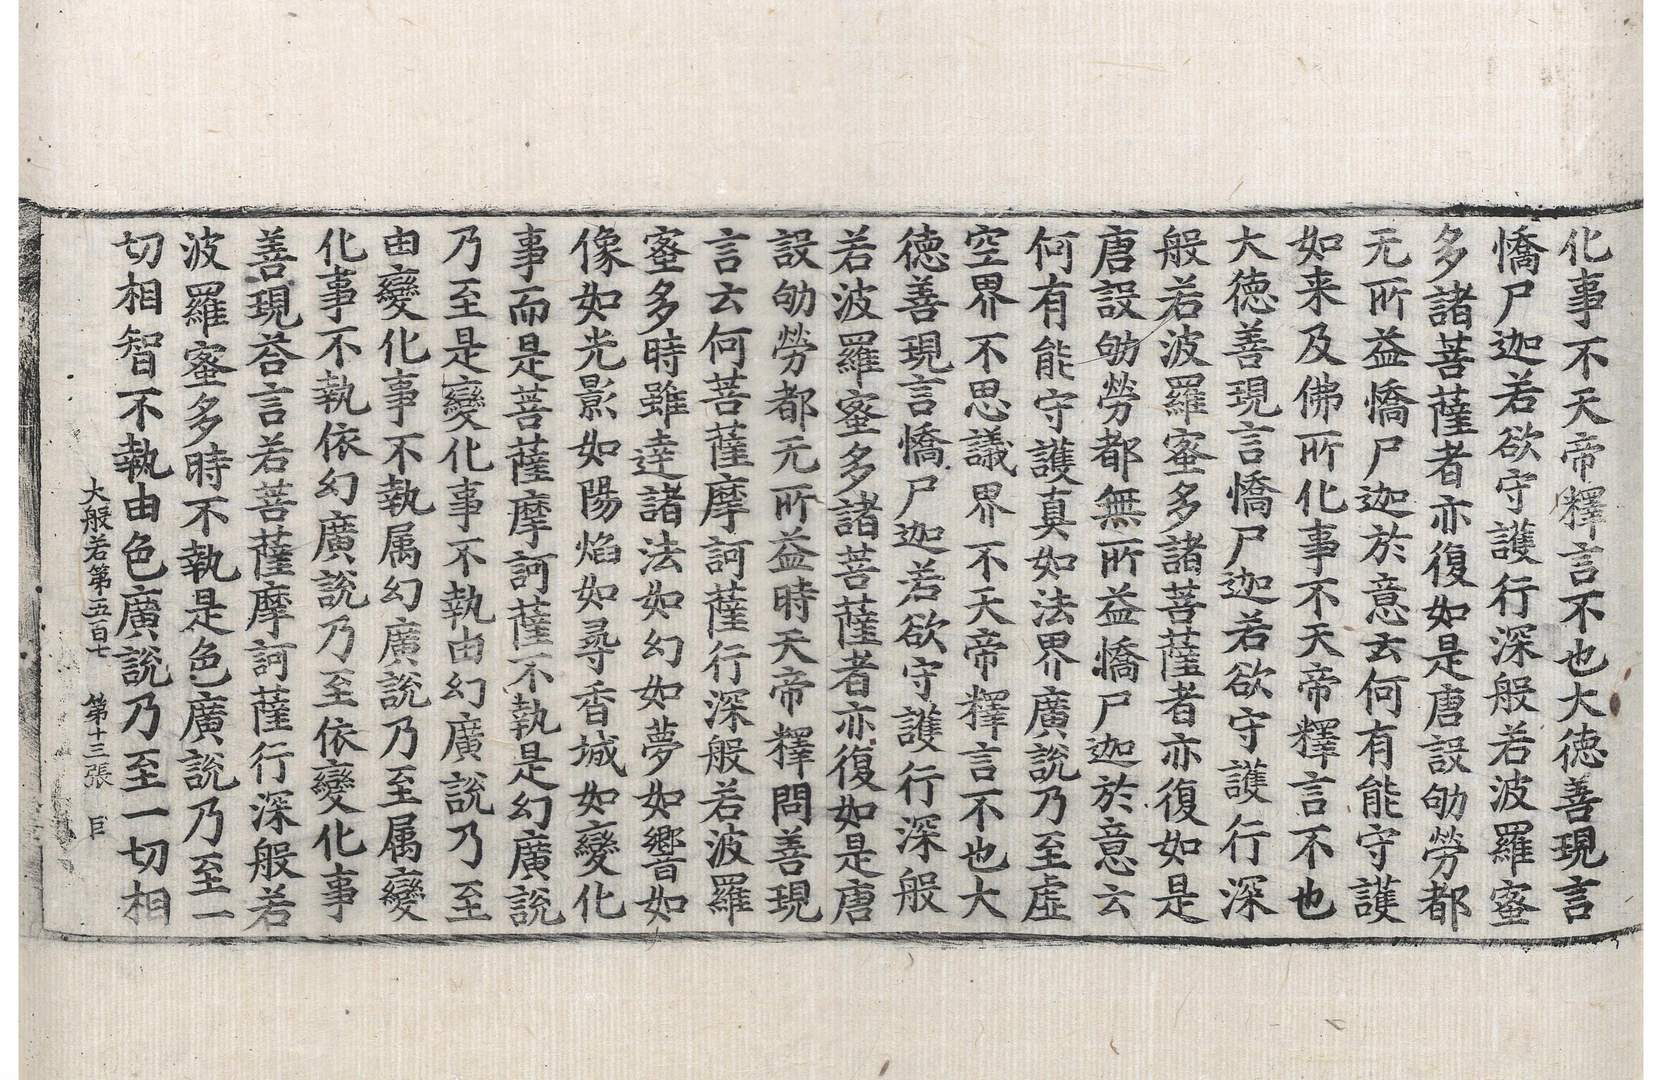 化事不天帝釋言不也大德善現言
憍尸迦若欲守護行深般若波羅蜜
多諸菩薩者亦復如是唐設劬勞都
无所益憍尸迦於意云何有能守護
如来及佛所化事不天帝釋言不也
大德善現言憍尸迦若欲守護行深
般若波羅蜜多諸菩薩者亦復如是
唐設劬勞都無所益憍尸迦於意云
何有能守護真如法界廣說乃至虛
空界不思議界不天帝釋言不也大
德善現言憍尸迦若欲守護行深般
若波羅蜜多諸菩薩者亦復如是唐
設劬勞都无所益時天帝釋問善現
言云何菩薩摩訶薩行深般若波羅
蜜多時雖達諸法如幻如夢如響如
像如光影如陽焰如尋香城如變化
事而是菩薩摩訶薩不執是幻廣說
乃至是變化事不執由幻廣說乃至
由變化事不執属幻廣說乃至属變
化事不執依幻廣說乃至依變化事
善現荅言若菩薩摩訶薩行深般若
波羅蜜多時不執是色廣說乃至一
切相智不執由色廣說乃至一切相
大般若第五百七 第十三張 巨